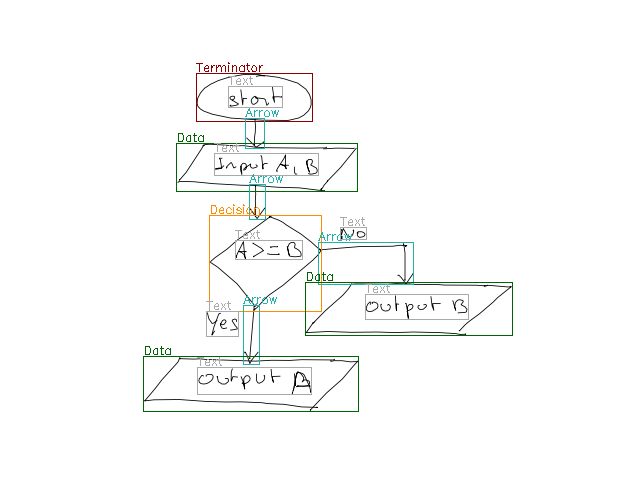 Terminator
Text
start
Arrow
Data
Text
Input A, B
Arrow
Decision
Text
A>=B
Text
No
Arrow
Data
Text
output B
Text
Yes
Arrow
Data
Text
output A